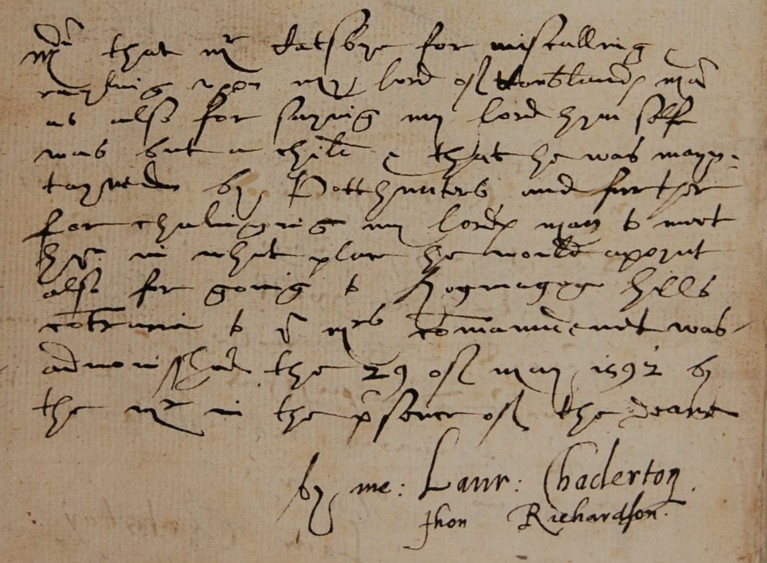 Md that mr for miscalling &
rayling uppon my lord of man
as also for saying my lord hym self
was but a child & that he was mayn-
tayned by Potthunters and further
for chalinging my lords man to meet
hym in what place he would apoynt
also for going to Hogmagoge hills
contrarie to ye mrs comandement was
admonished the 29 of may 1592 by
the mr in the psence of the deane
by me: Laur: Chaderton.
Jhon Richardson.